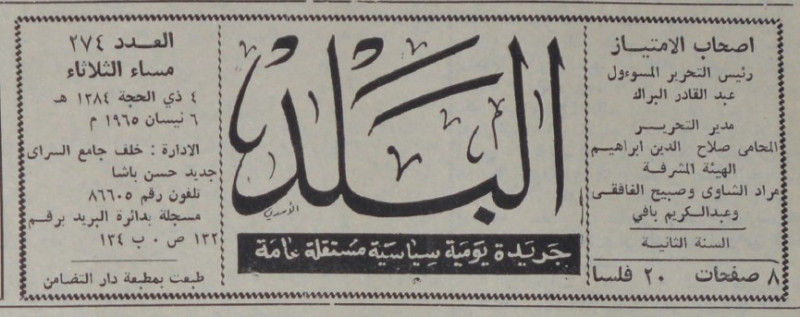 اصحاب الامتياز
رئيس التحرير المسوءول
عبد القادر البراك
مدير التحرير
المحامى صلاح الدين ابراهيم
الهيئة المشرفة
مراد الشاوى وصبيح الغافقى
وعبدالكريم بافي
السنة الثانية
٨ صفحات ٢٠ فلسا
البلد
الأسدي
جريدة يومية سياسية مستقلة عامة
العدد ٢٧٤
مساء الثلاثاء
٤ ذي الحجة ١٣٨٤ هـ
٦ نيسان ١٩٦٥ م
الادارة : خلف جامع السراى
جديد حسن باشا
تلفون رقم ٨٦٦٠٥
مسجلة بدائرة البريد برقم
١٣٢ ص ٠ ب ١٣٤
طبعت بمطبعة دار التضامن